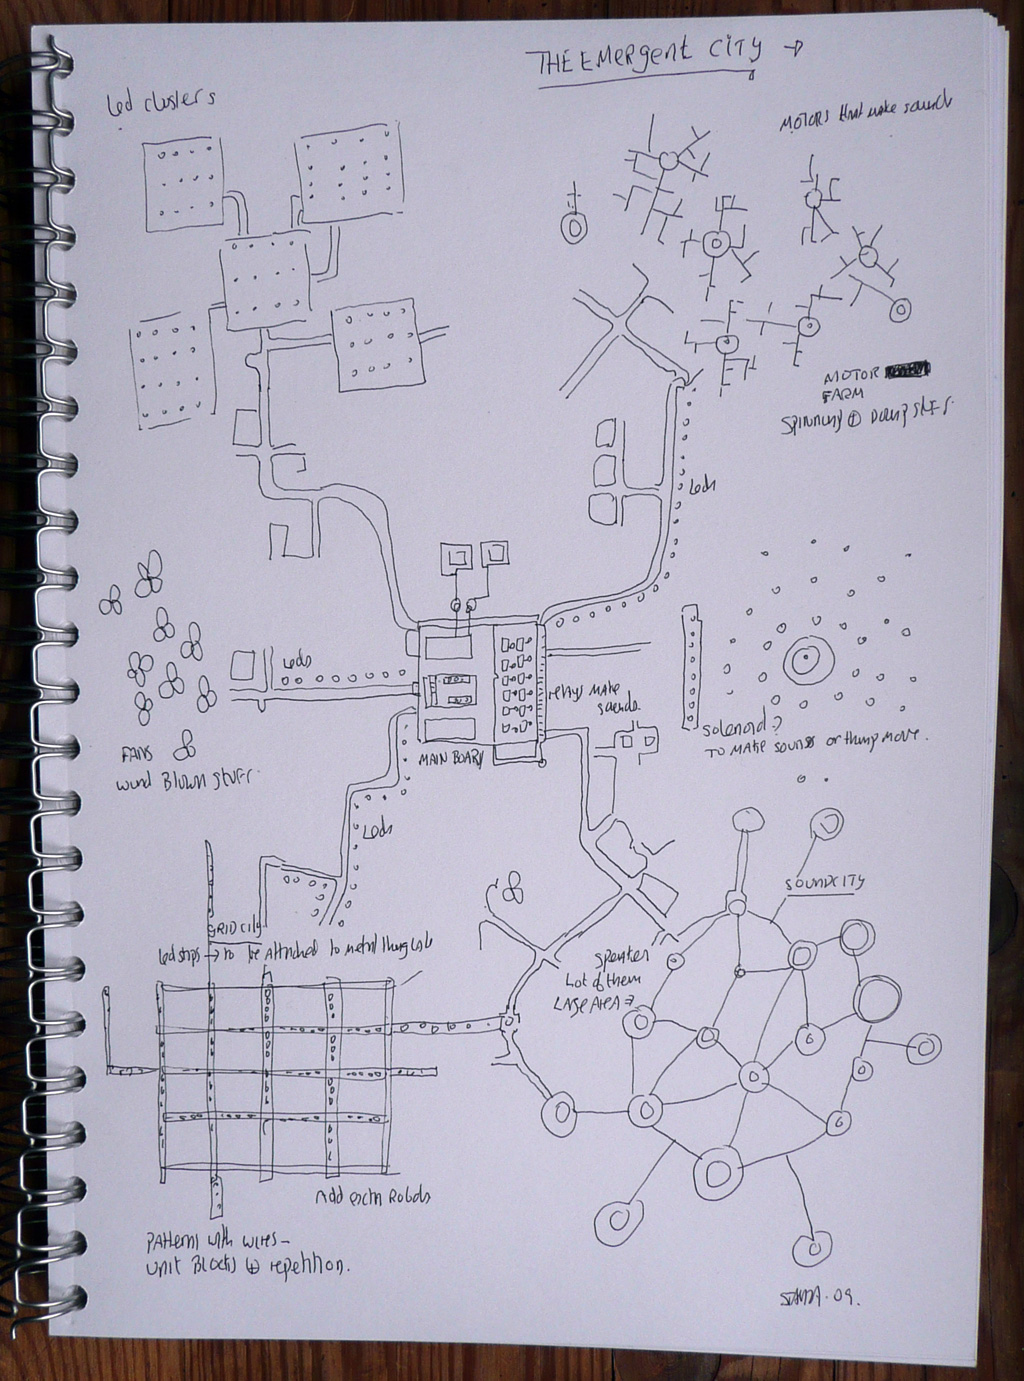 THE EMERGENT CITY →
Led clusters
MOTORS that make sound
MOTOR
FARM
SPINNING ⊕ Damp stuff.
Leds
Leds
relays make
sounds.
MAIN BOARD
solenoid?
TO MAKE SOUNDS or thump move.
FANS
wind Blown stuff.
Leds
SOUNDCITY
GRID City
Led strips → to be Attached to metal
speaker
Lot of them
LARGE AREA?
Add extra Roads
Patterns with wires –
unit Blocks ⊕ repetition.
09.